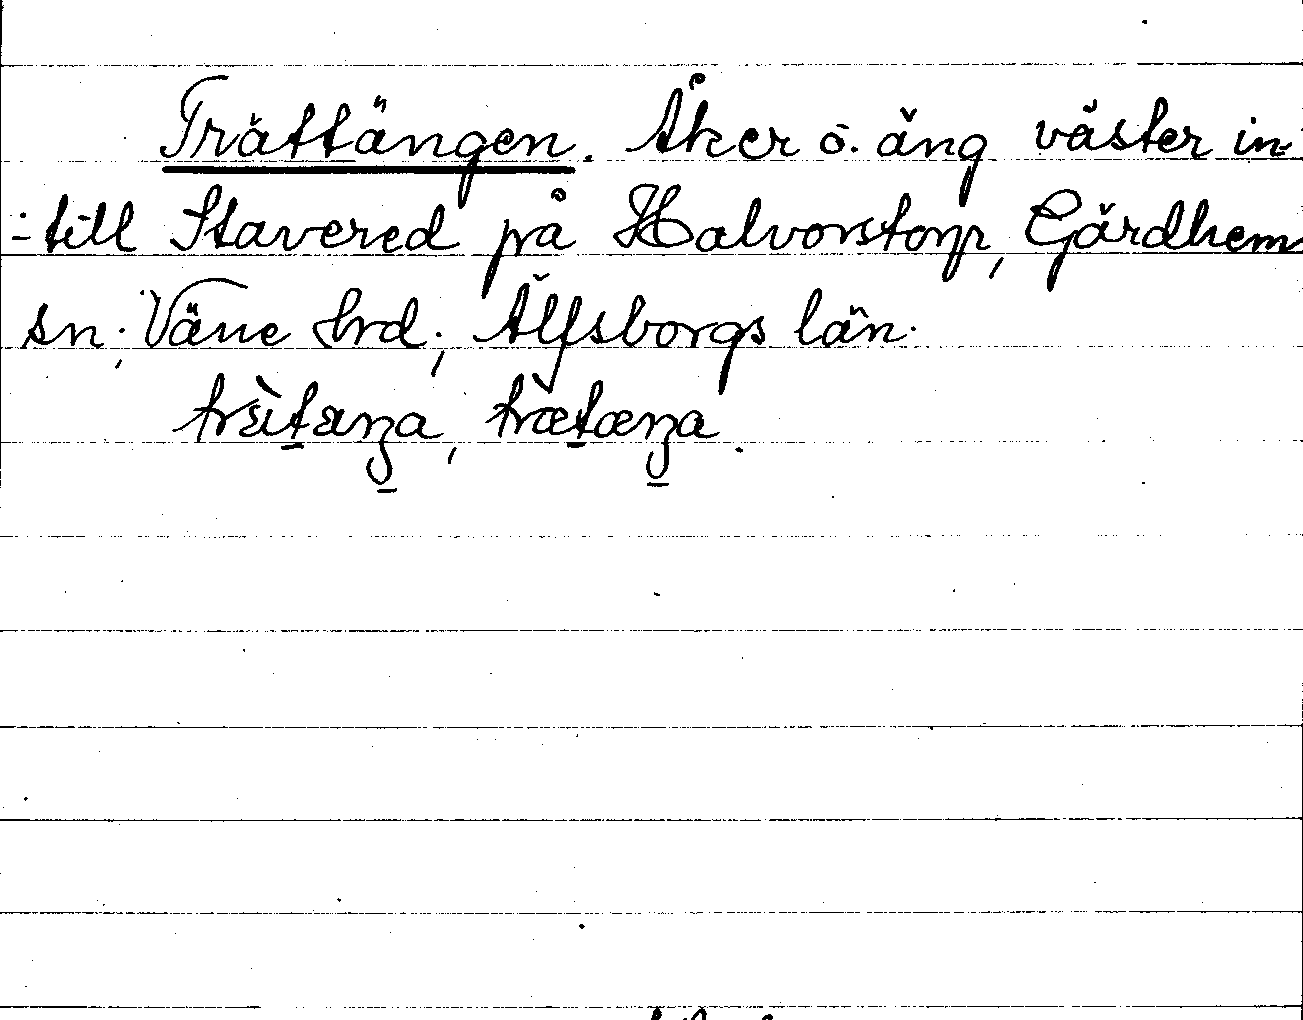 Trättängen. Åker o. äng väster in-
-till Stavered på Halvorstorp, Gärdhem
sn; Väne hrd; Älfsborgs län.